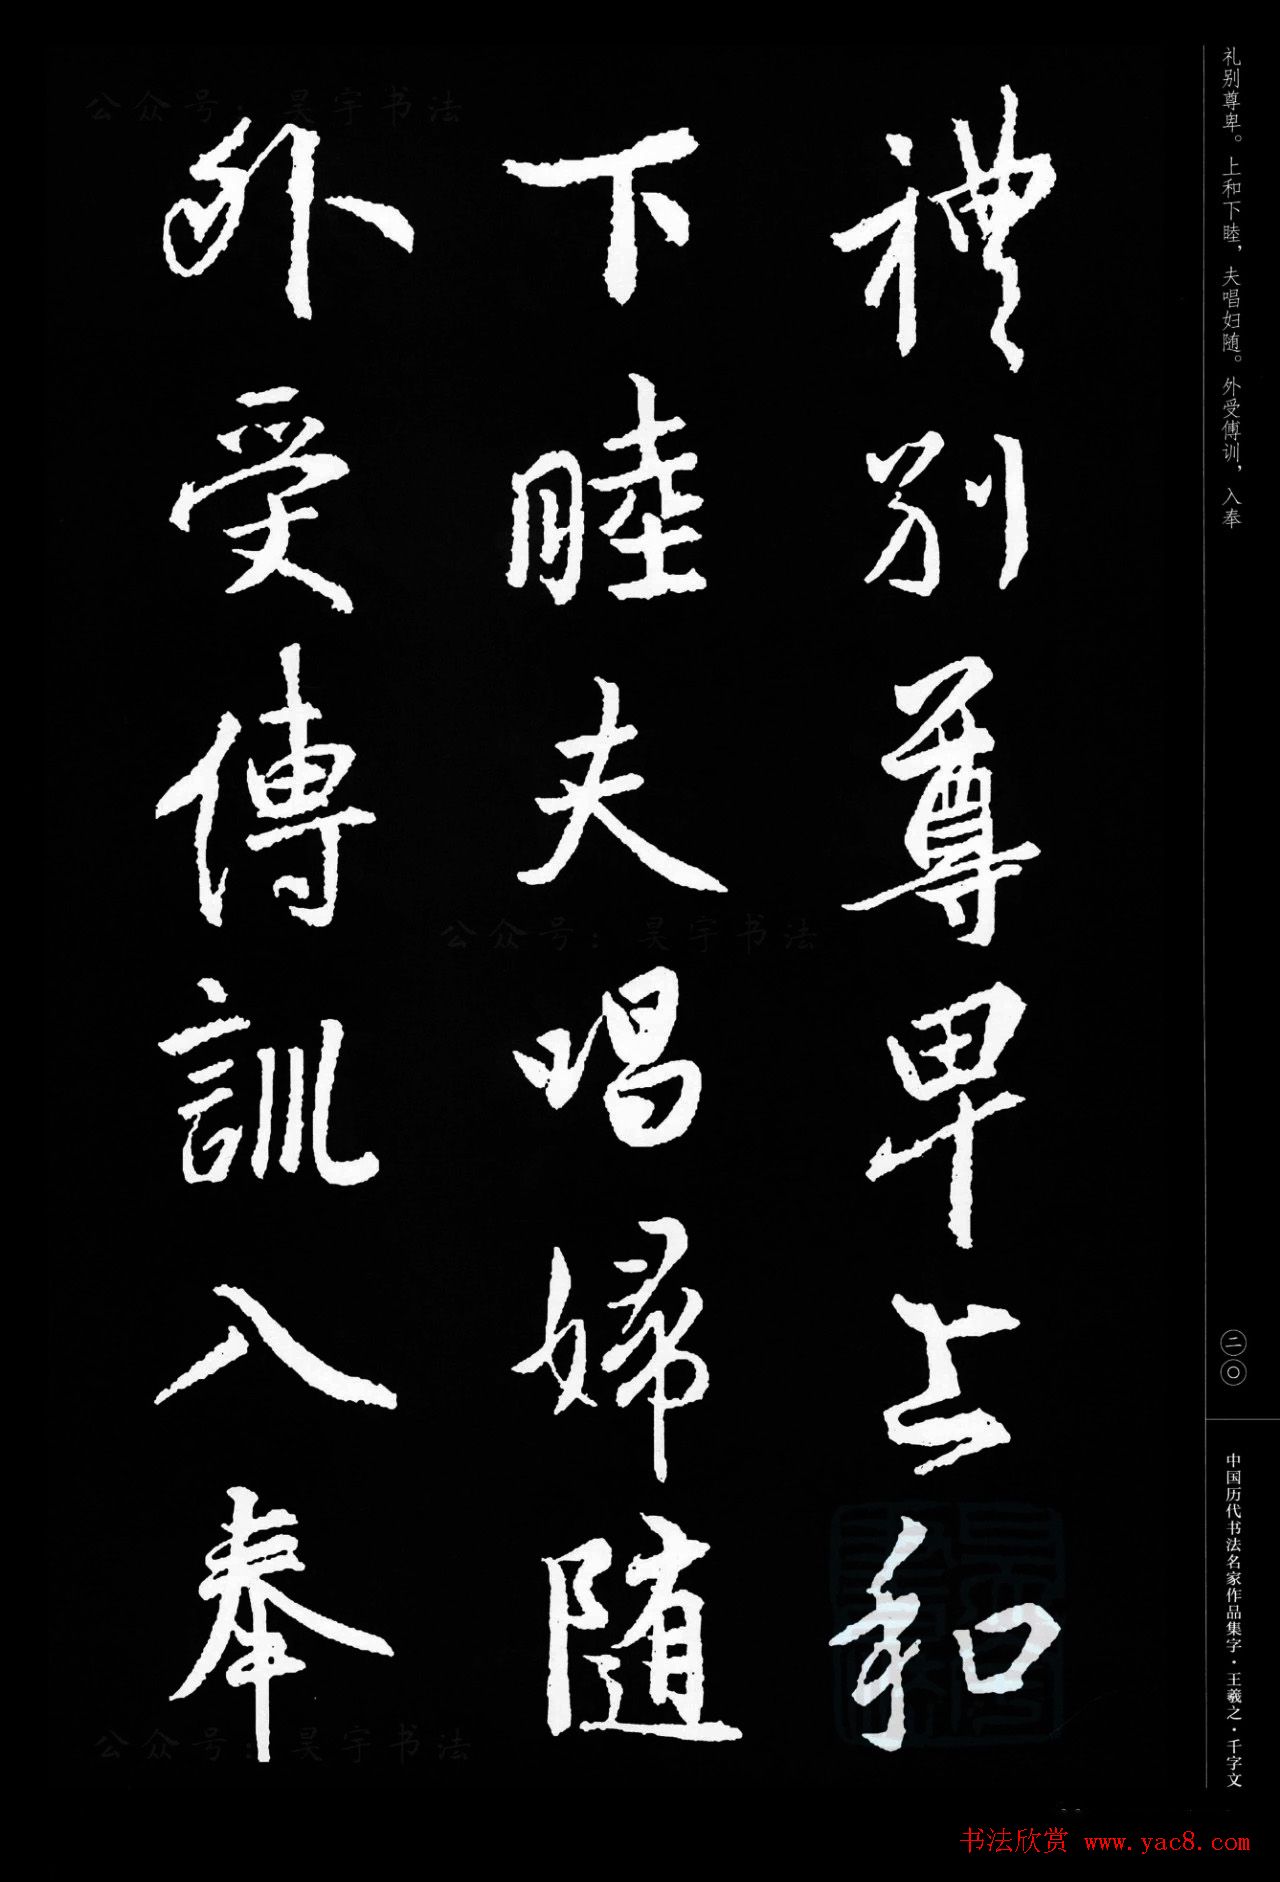 礼别尊卑。上和下睦，夫唱妇随。外受傅训，入奉
禮别尊卑上和
下睦夫唱婦随
外受傅訓入奉
二〇
中国历代书法名家作品集字·王羲之·千字文
公众号：昊宇书法
公众号：昊宇书法
公众号：昊宇书法
书法欣赏 www.yac8.com